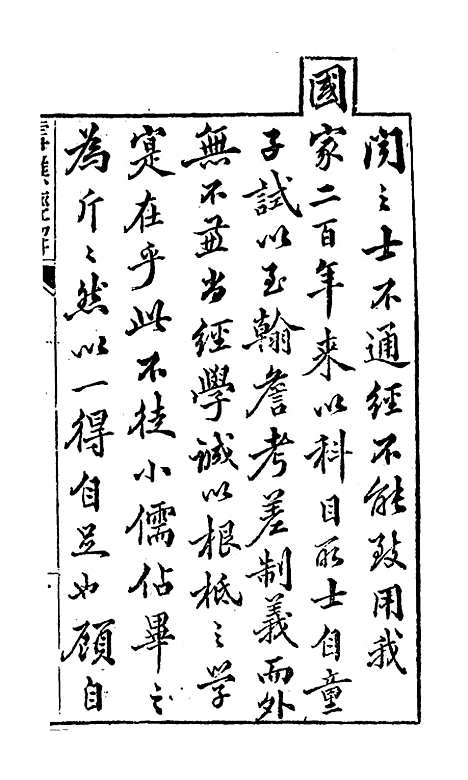 閱之士不通經不能致用我
國家二百年來以科目取士自童
子試以至翰詹考差制義而外
無不兼尚經學誠以根柢之學
寔在乎此不徒小儒佔畢之
為斤斤然以一得自足也顧自